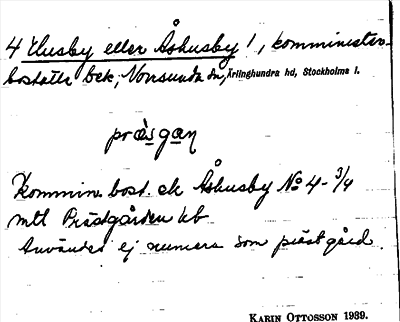 4 Husby eller Åshusby 1, komminister-
boställe bek, Norrsunda sn, Ärlinghundra hd, Stockholms l.
prä̀sgan̥
Kommin. bost. ek Åshusby No 4 - 3/4
mtl Prästgården kb
Användes ej numera som prästgård.
KARIN OTTOSSON 1939.